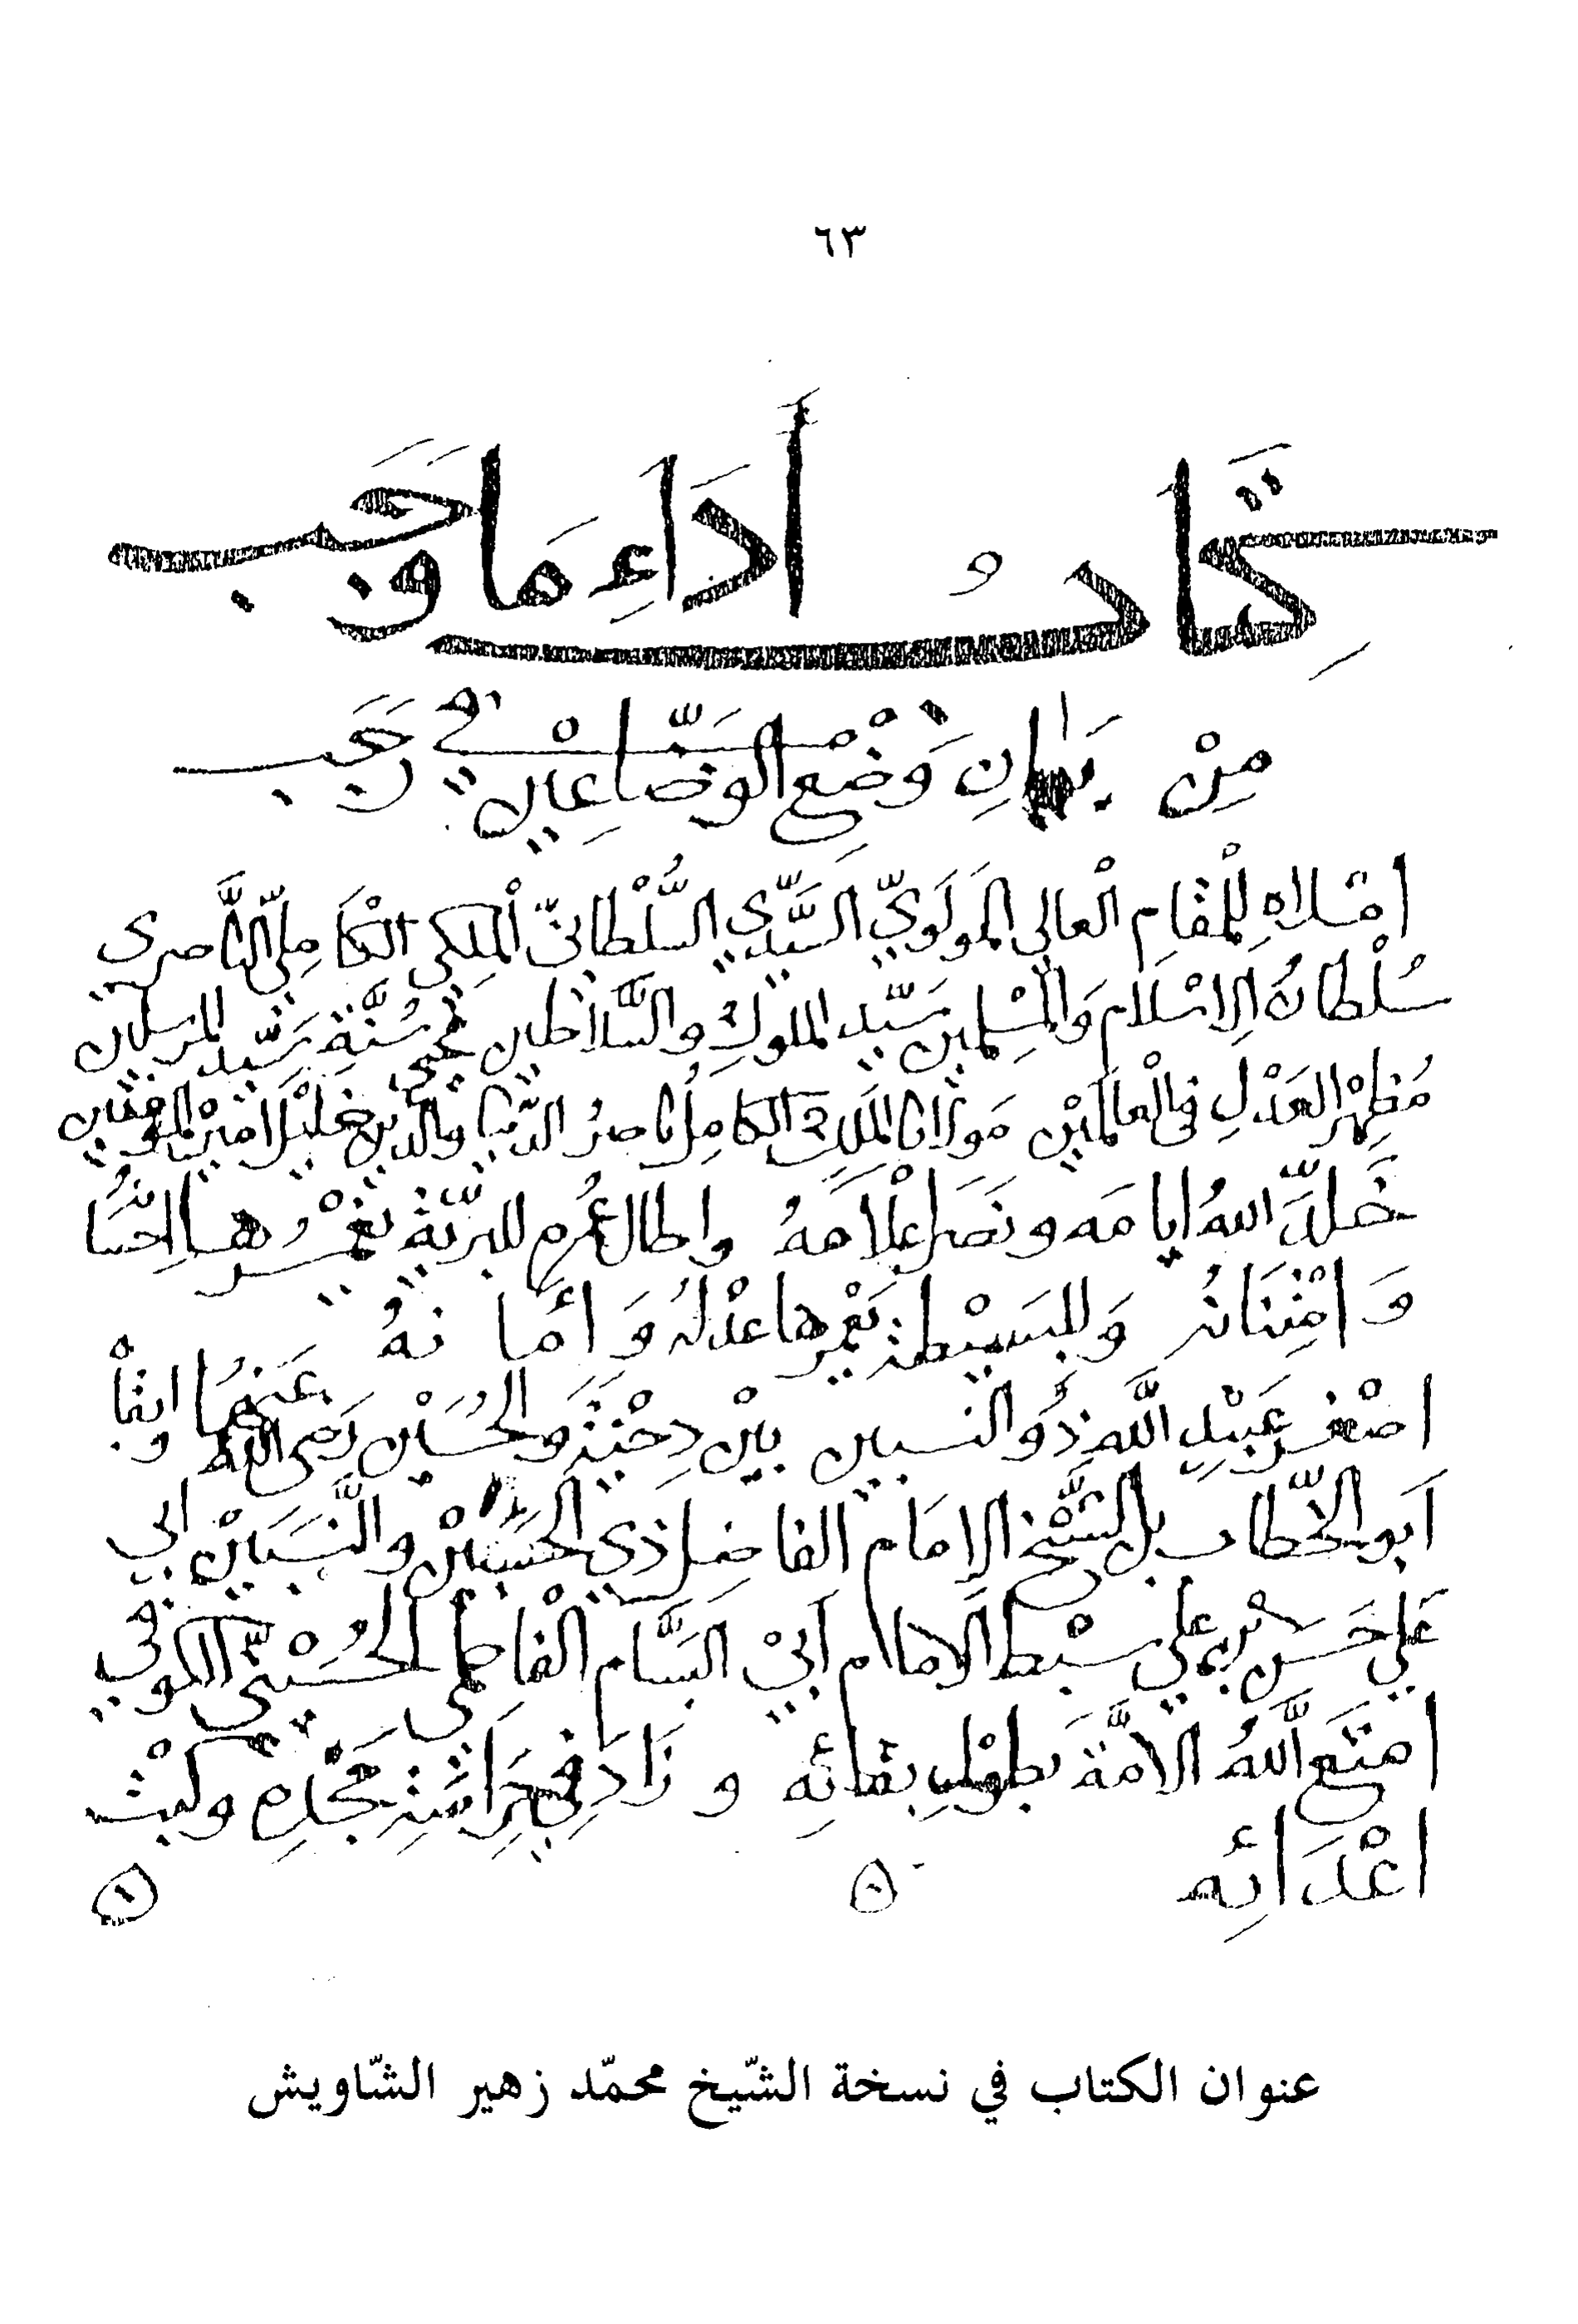 ٦٣
كِتَابُ أَدَاءِ مَا وَجَب
مِنْ بَيَانِ وَضْعِ الوَضَّاعِيْنَ فِي رَجَب
امْلاه لِلْمقَامِ الْعالى المَوْلَوِيّ السَّيِّدِي السُّلْطانيّ الْملِكى الْكامِليّ النَّاصرى
سُلْطانُ الاسْلَام وَالْمسْلِمين سَيّد الملوكِ والسَّلاطين مُحيى سُنَّة سَيّد المرسلين
مُظهِرْ العَدْلِ فى الْعالَمَيْن مَوْلانا الملَكِ الكامِلُ ناصرُ الدّنيا والدّين خَليْل اميْر المومنين
خَلّدَ اللهُ ايامَه ونَصَر اعْلَامَهُ واطال عُمره للبَريّة يَغْمُرُها احْسَا
وَامْتِنَانُه وَللبَسِيْطة يَعْمرُها عدْلهُ وَأمَا نهُ
اصْغر عَبِيْدِ اللَّه ذُو النسبين بيْن دِحْيَة وَالحُسَيْن رَضى اللهُ عَنهُمَا
اَبو الخطّاب بن الشَّيْخ الامَام الفاضل ذي الحسَبَيْن والنَّسَبَيْن ابى
عَلي حَسَن بْن على سبْط الامام اَبيْ البَسَّام الْفاطمى الحُسَيْنيّ الكوفى
امتَع اللَّهُ الامَّةَ بطوْلِ بقائِه وزادَ في حِرَاسَةِ مَجْدِه وكبْت
اعْدَائِه
عنوان الكتاب في نسخة الشّيخ محمّد زهير الشّاويش